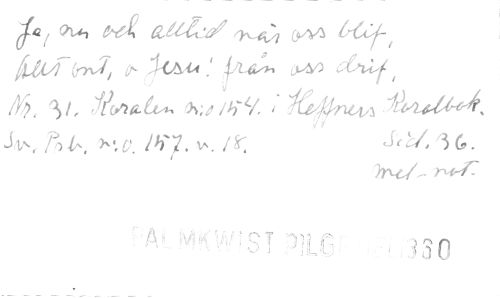 Ja, nu och alltid när oss blif,
Allt ont, o Jesu! från oss drif,
Nr. 31. Koralen n:o 154. i Hæffners Koralbok.
Sv. Psb. n:o. 157. v. 18. Sid. 36.
mel-not.
PALMKWIST PILGR 360